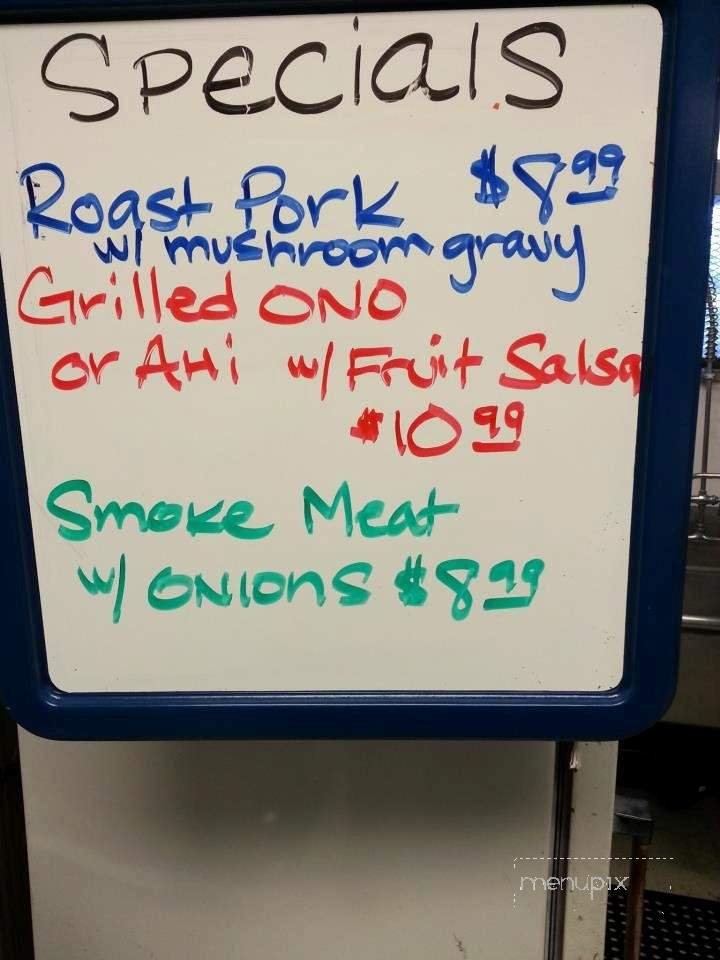 Specials
Roast Pork $8.99
w/ mushroom gravy
Grilled ONO
or AHi w/ Fruit Salsa
$10 99
Smoke Meat
w/ ONIONS $8 99
menupix